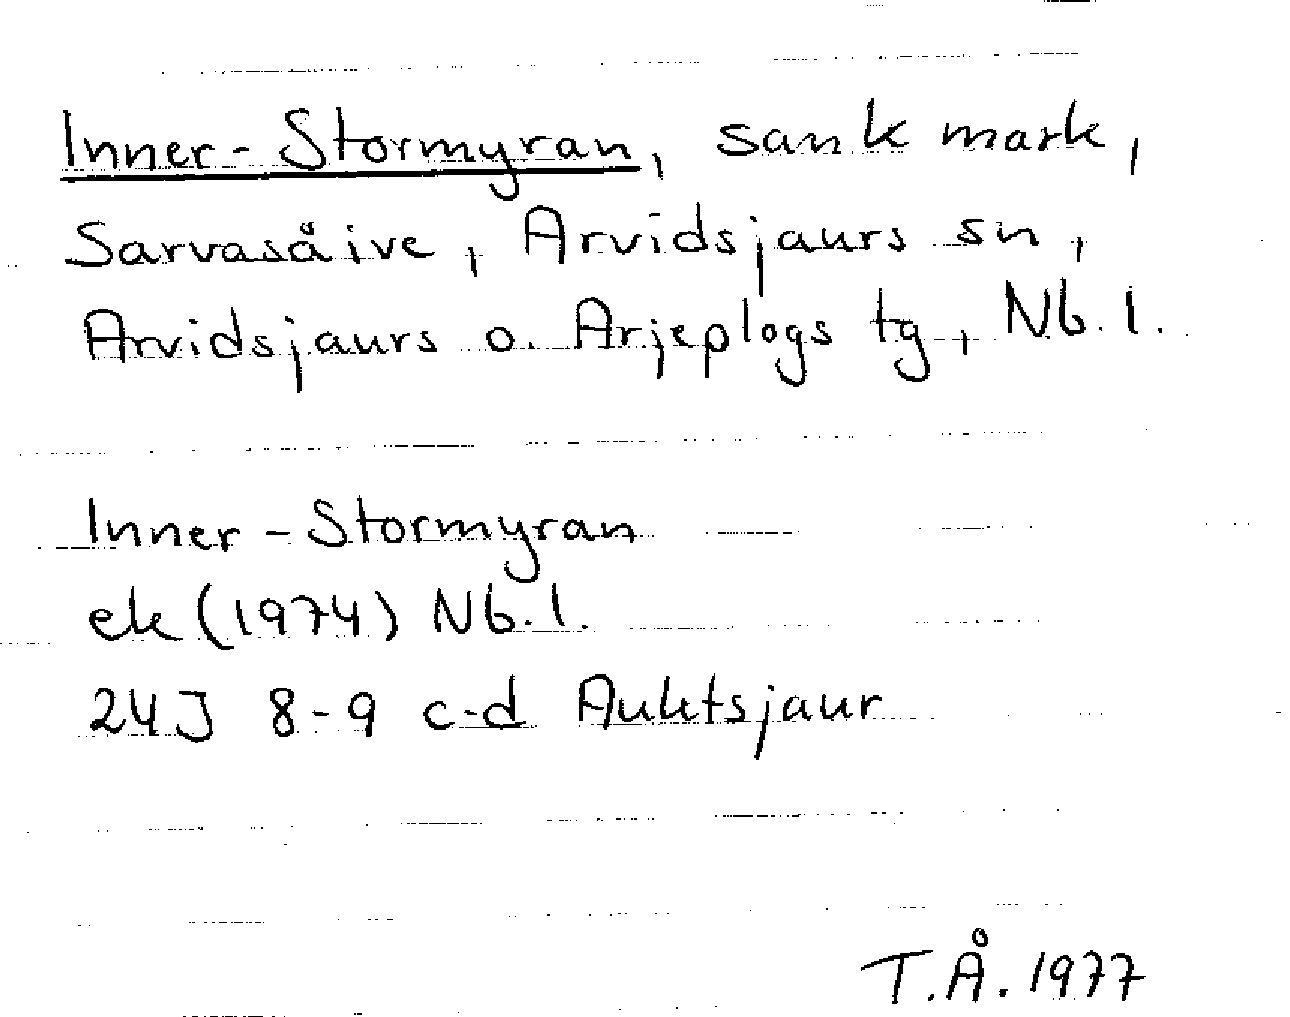 Inner-Stormyran, sank mark,
Sarvasåive, Arvidsjaurs sn,
Arvidsjaurs o. Arjeplogs tg, Nb. l.
Inner-Stormyran
ek (1974) Nb. l.
24J 8-9 c-d Auktsjaur
T.Å. 1977